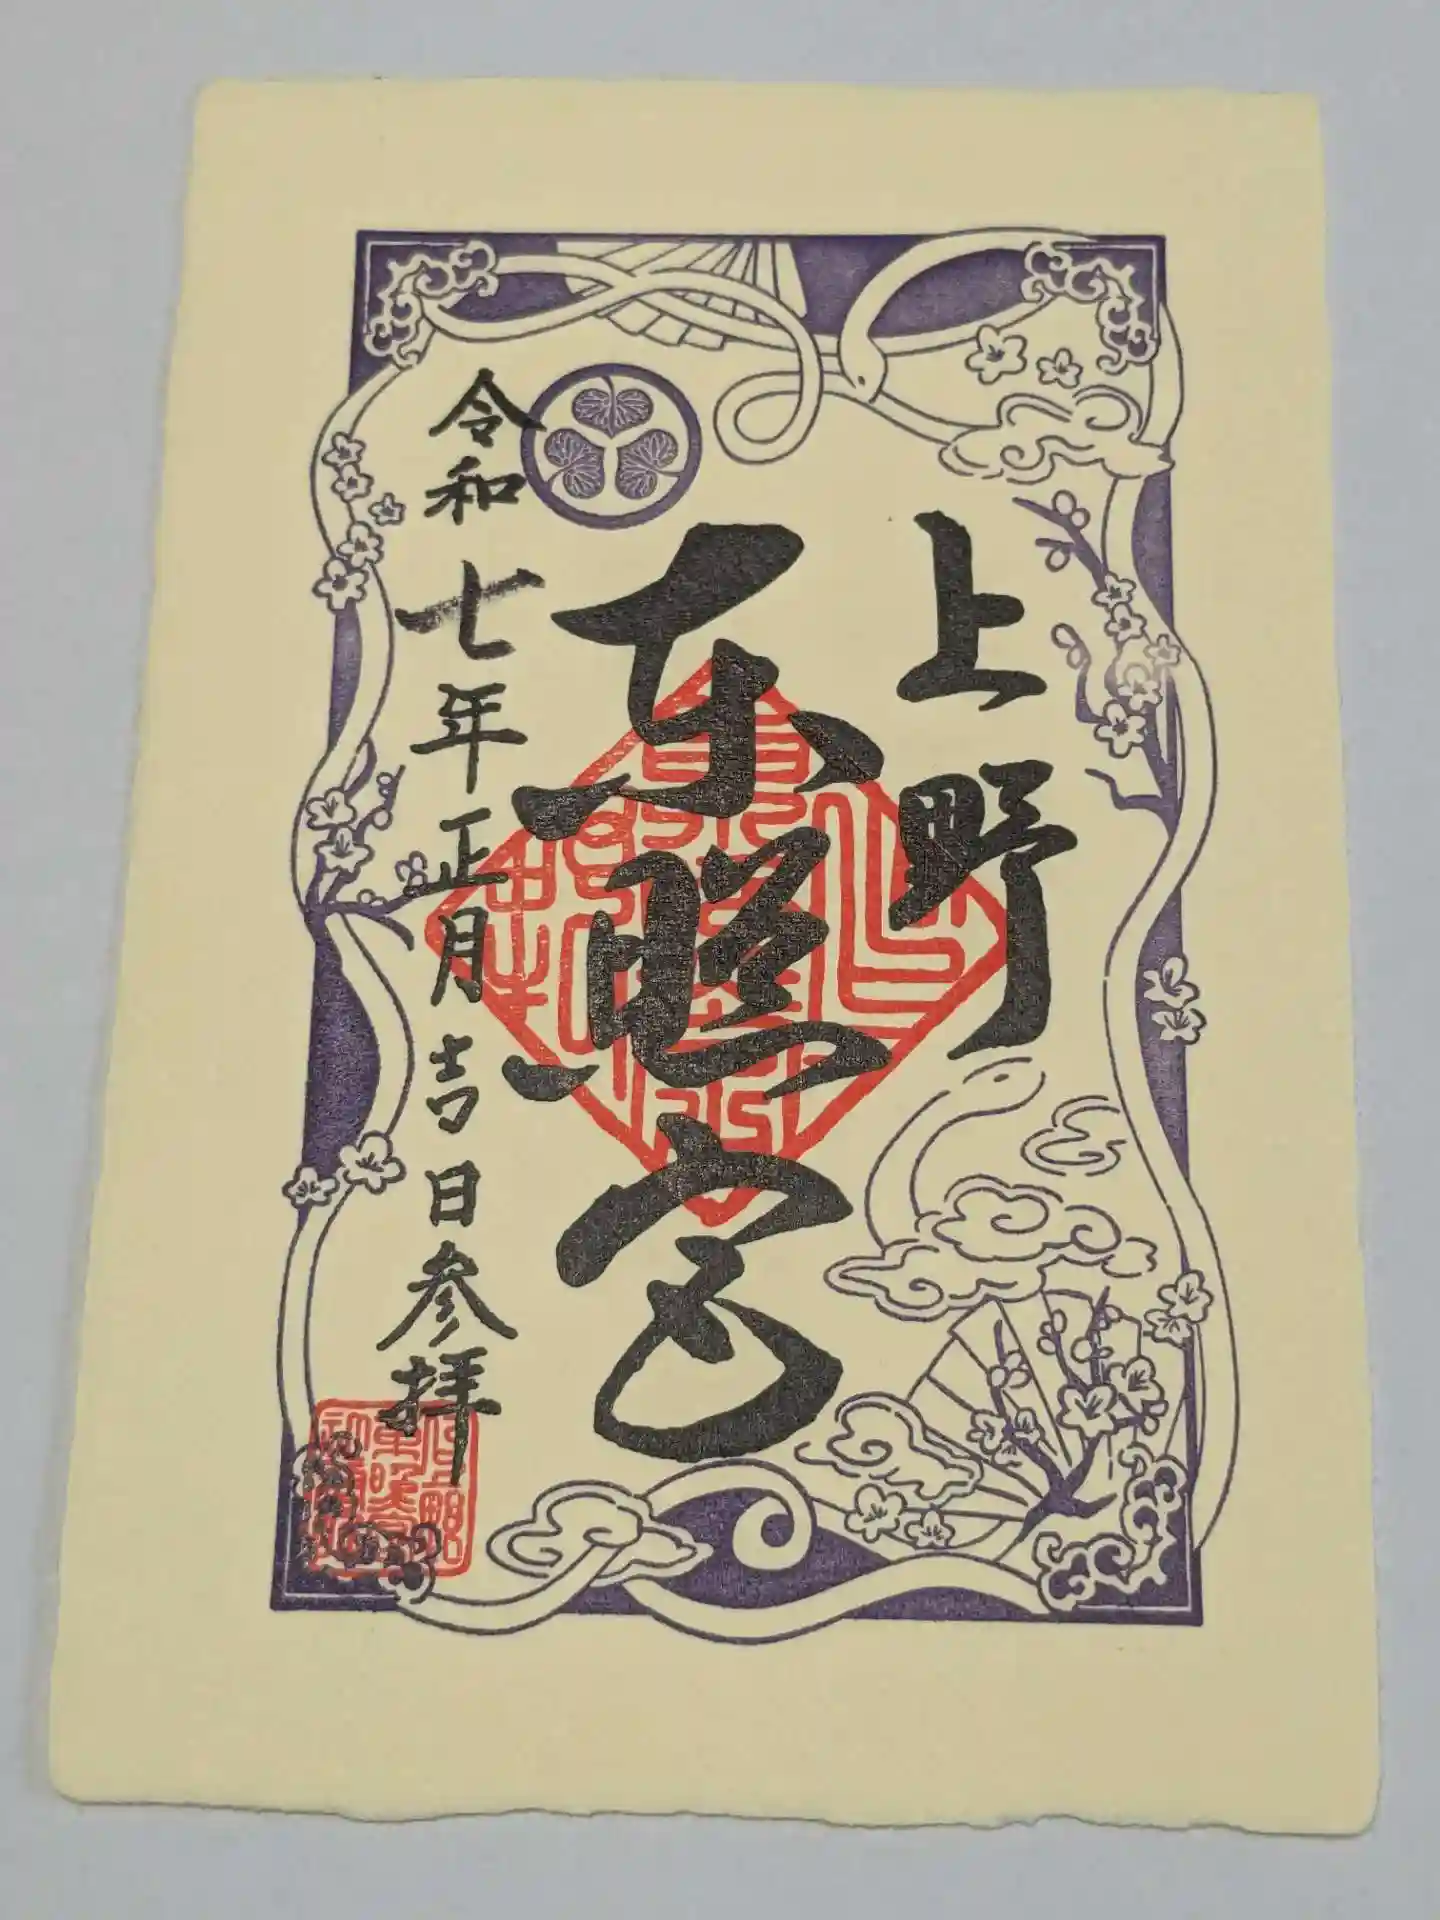 上野
東照宮
令和七年正月吉日参拝